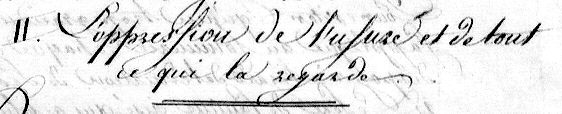 II. L'oppression de l'usure et de tout
ce qui la regarde.